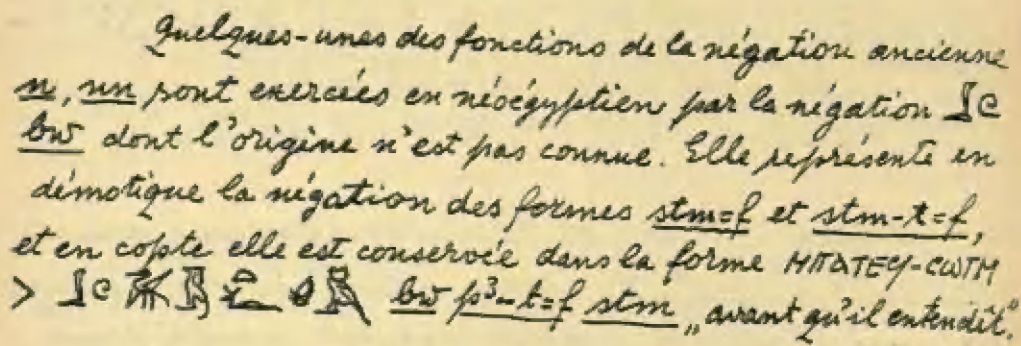 Quelques-unes des fonctions de la négation ancienne
n, nn sont exercées en néoégyptien par la négation 𓃀𓏲
bw dont l'origine n'est pas connue. Elle représente en
démotique la négation des formes stm=f et stm-t=f,
et en copte elle est conservée dans la forme ⲘⲠⲀⲦⲈϤ-ⲤⲰⲦⲘ
> 𓃀𓏲 bw pꜣ-t=f stm „avant qu'il entendît."